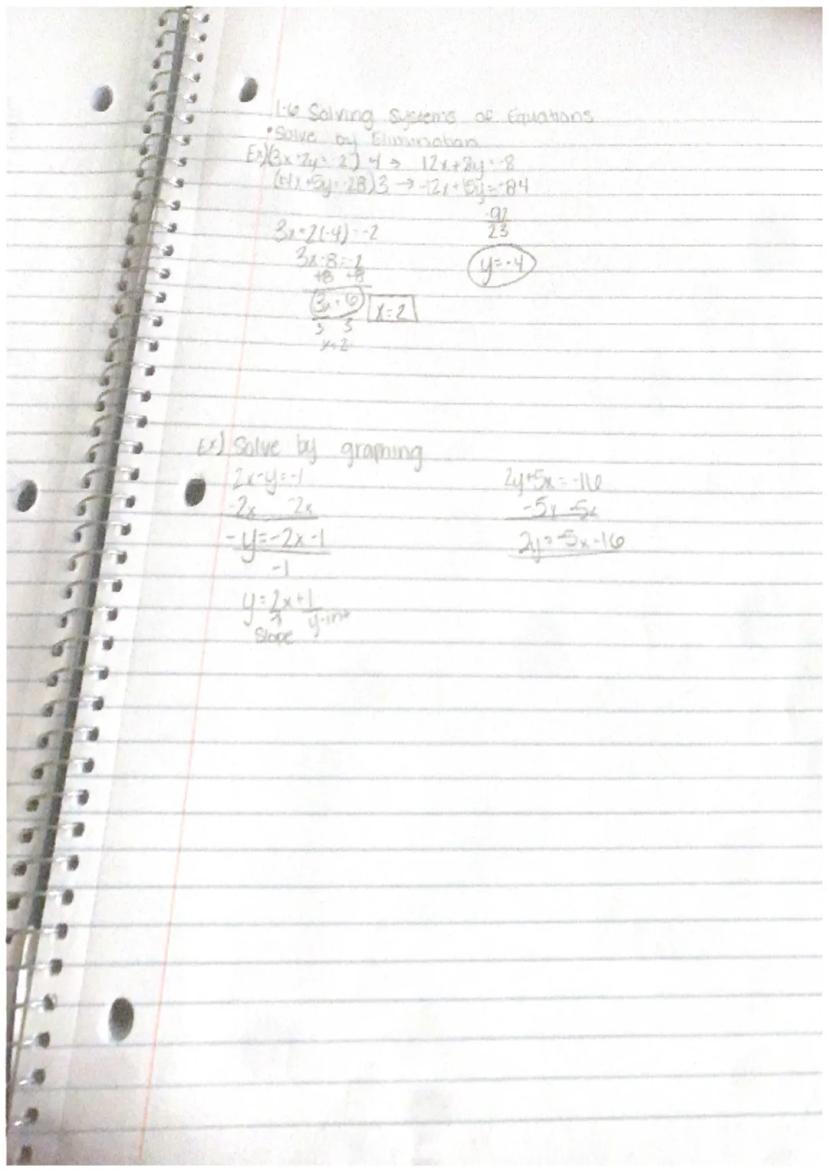 1.6 Solving Systems of Equations
• Solve by Elimination
Ex) (3x+2y=-2) 4 → 12x+8y=-8
(-4x+5y=-28)3 → -12x+15y=-84
-92
23
3x+2(-4)=-2
y=-4
3x-8=-2
+8 +8
3x=6 x=2
3 3
x=2
Ex) Solve by graphing
2x-y=-1
-2x 2x
-y=-2x-1
-1
y=2x+1
y-int
Slope
2y+5x=-16
-5x -5x
2y=-5x-16